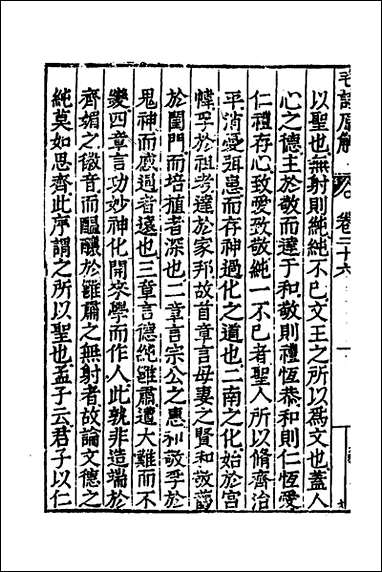 毛詩原解 卷二十六
以聖也無射則純純不已文王之所以爲文也蓋人
心之德主於敬而達于和敬則禮恆恭和則仁恆愛
仁禮存心致愛致敬純一不已者聖人所以脩齊治
平消憂弭患而存神過化之道也二南之化始於宮
幃孚於祖考達於家邦故首章言母妻之賢和敬
於閨門而培植者深也二章言宗公之惠刑敬孚於
鬼神而感過者遠也三章言德純雝肅遭大難而不
變四章言功妙神化開文學而作人此孰非造端於
齊媚之徽音而醞釀於雝肅之無射者故論文德之
純莫如思齊此序謂之所以聖也孟子云君子以仁